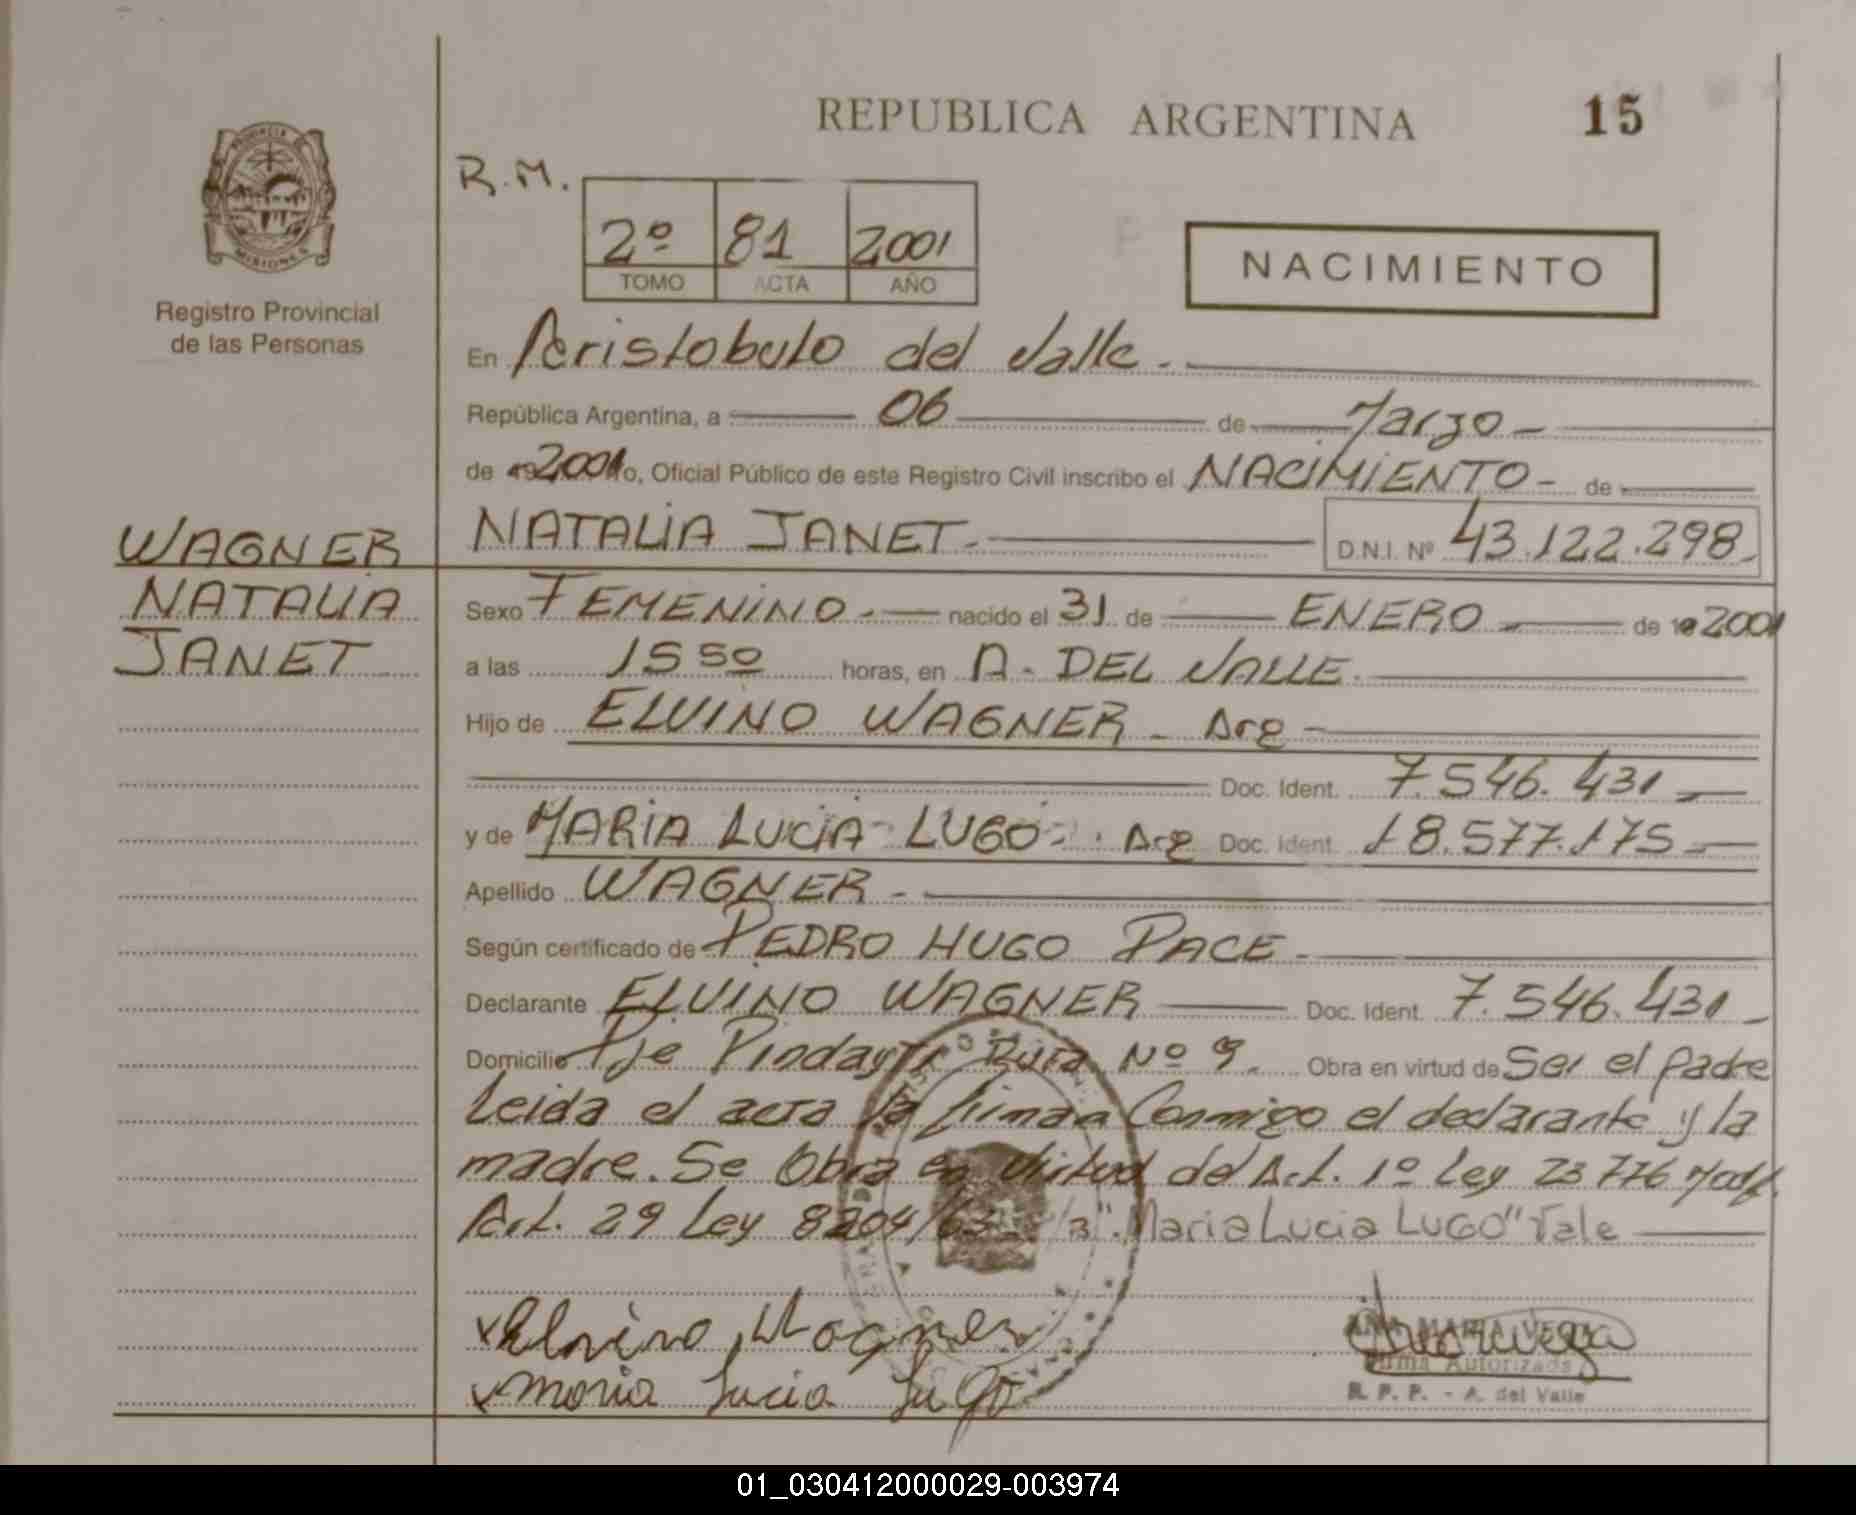 REPUBLICA ARGENTINA
15
PROVINCIA DE
MISIONES
Registro Provincial
de las Personas
R.M.
2º 81 2001
TOMO ACTA AÑO
NACIMIENTO
En Aristobulo del Valle.
República Argentina, a 06 de Marzo
de 19 2001 Yo, Oficial Público de este Registro Civil inscribo el NACIMIENTO - de
NATALIA JANET. D.N.I. Nº 43.122.298
WAGNER
NATALIA
JANET
Sexo FEMENINO nacido el 31 de ENERO de 19 2001
a las 15 50 horas, en A. DEL VALLE.
Hijo de ELVINO WAGNER - Arg
Doc. Ident. 7.546.431
y de MARIA LUCIA LUGO . Arg Doc. Ident. 18.577.175
Apellido WAGNER -
Según certificado de PEDRO HUGO PACE
Declarante ELVINO WAGNER Doc. Ident. 7.546.431
Domicilio Pje Pindayti Ruta Nº 9. Obra en virtud de Ser el padre
Leida el acta la firman Conmigo el declarante y la
madre. Se Obra en virtud del Art. 1º Ley 23776 Modf.
Art. 29 Ley 8204/63 "Maria Lucia LUGO" Vale
Elvino Wagner
Maria Lucia Lugo
ANA MARIA VEGA
Firma Autorizada
R. P. P. - A. del Valle
01_030412000029-003974